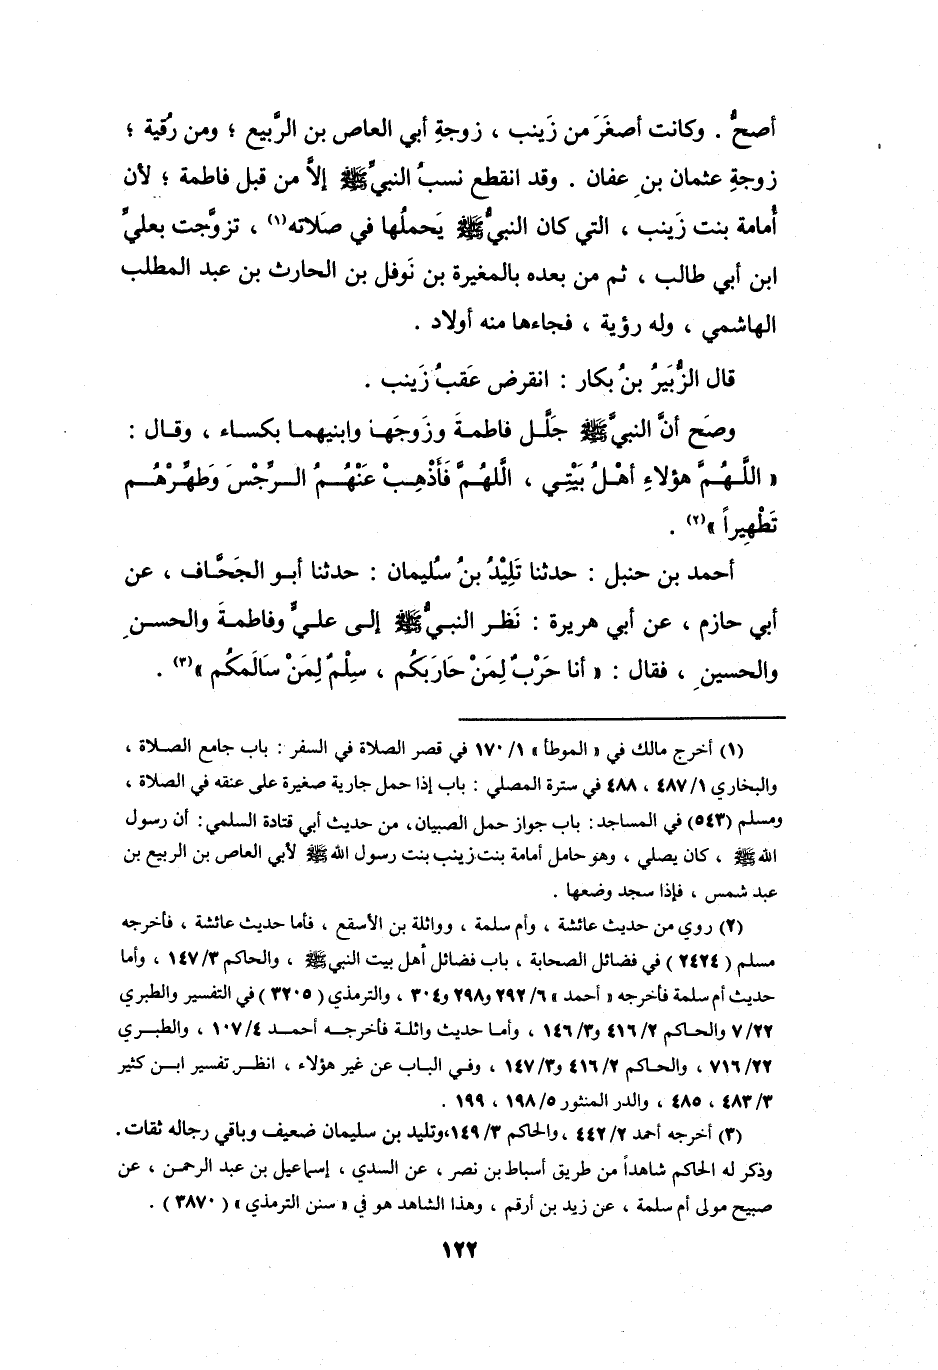 أصحُّ . وكانت أصغَرَ من زَينب ، زوجةِ أبي العاص بن الرَّبيع ؛ ومن رُقية ؛
زوجةِ عثمان بنِ عفان . وقد انقطع نسبُ النبيِّ ﷺ إلاَّ من قبل فاطمة ؛ لأن
أُمامة بنت زَينب ، التي كان النبيُّ ﷺ يَحملُها في صَلاته(١) ، تزوَّجت بعليِّ
ابن أبي طالب ، ثم من بعده بالمغيرة بن نَوفل بن الحارث بن عبد المطلب
الهاشمي ، وله رؤية ، فجاءها منه أولاد .
قال الزُّبَيرُ بنُ بكار : انقرض عَقبُ زَينب .
وصَح أنَّ النبيَّ ﷺ جَلَّل فاطمةَ وزوجَها وابنيهما بكساء ، وقال :
« اللَّهُمَّ هؤلاءِ أهْلُ بَيْتِي ، اللَّهُمَّ فَأَذْهِبْ عَنْهُمُ الرِّجْسَ وَطَهِّرْهُم
تَطْهِيراً »(٢) .
أحمد بن حنبل : حدثنا تَلِيْدُ بنُ سُليمان : حدثنا أبو الجَحَّاف ، عن
أبي حازم ، عن أبي هريرة : نَظر النبيُّ ﷺ إلى عليٍّ وفاطمةَ والحسنِ
والحسينِ ، فقال : « أنا حَرْبٌ لِمَنْ حَارَبَكُم ، سِلْمٌ لِمَنْ سَالَمَكُم »(٣) .
(١) أخرج مالك في « الموطأ » ١٧٠/١ في قصر الصلاة في السفر : باب جامع الصلاة ،
والبخاري ٤٨٧/١ ، ٤٨٨ في سترة المصلي : باب إذا حمل جارية صغيرة على عنقه في الصلاة ،
ومسلم (٥٤٣) في المساجد : باب جواز حمل الصبيان، من حديث أبي قتادة السلمي: أن رسول
الله ﷺ ، كان يصلي ، وهو حامل أمامة بنت زينب بنت رسول الله ﷺ لأبي العاص بن الربيع بن
عبد شمس ، فإذا سجد وضعها .
(٢) روي من حديث عائشة ، وأم سلمة ، وواثلة بن الأسقع ، فأما حديث عائشة ، فأخرجه
مسلم ( ٢٤٢٤ ) في فضائل الصحابة ، باب فضائل أهل بيت النبي ﷺ ، والحاكم ١٤٧/٣ ، وأما
حديث أم سلمة فأخرجه « أحمد » ٢٩٢/٦ و٢٩٨ و٣٠٤ ، والترمذي ( ٣٢٠٥ ) في التفسير والطبري
٧/٢٢ والحاكم ٤١٦/٢ و١٤٦/٣ ، وأما حديث واثلة فأخرجه أحمد ١٠٧/٤ ، والطبري
٧١٦/٢٢ ، والحاكم ٤١٦/٢ و١٤٧/٣ ، وفي الباب عن غير هؤلاء ، انظر تفسير ابن كثير
٤٨٣/٣ ، ٤٨٥ ، والدر المنثور ١٩٨/٥ ، ١٩٩ .
(٣) أخرجه أحمد ٤٤٢/٢ ، والحاكم ١٤٩/٣،وتليد بن سليمان ضعيف وباقي رجاله ثقات .
وذكر له الحاكم شاهداً من طريق أسباط بن نصر ، عن السدي ، إسماعيل بن عبد الرحمن ، عن
صبيح مولى أم سلمة ، عن زيد بن أرقم ، وهذا الشاهد هو في « سنن الترمذي » ( ٣٨٧٠ ) .
١٢٢